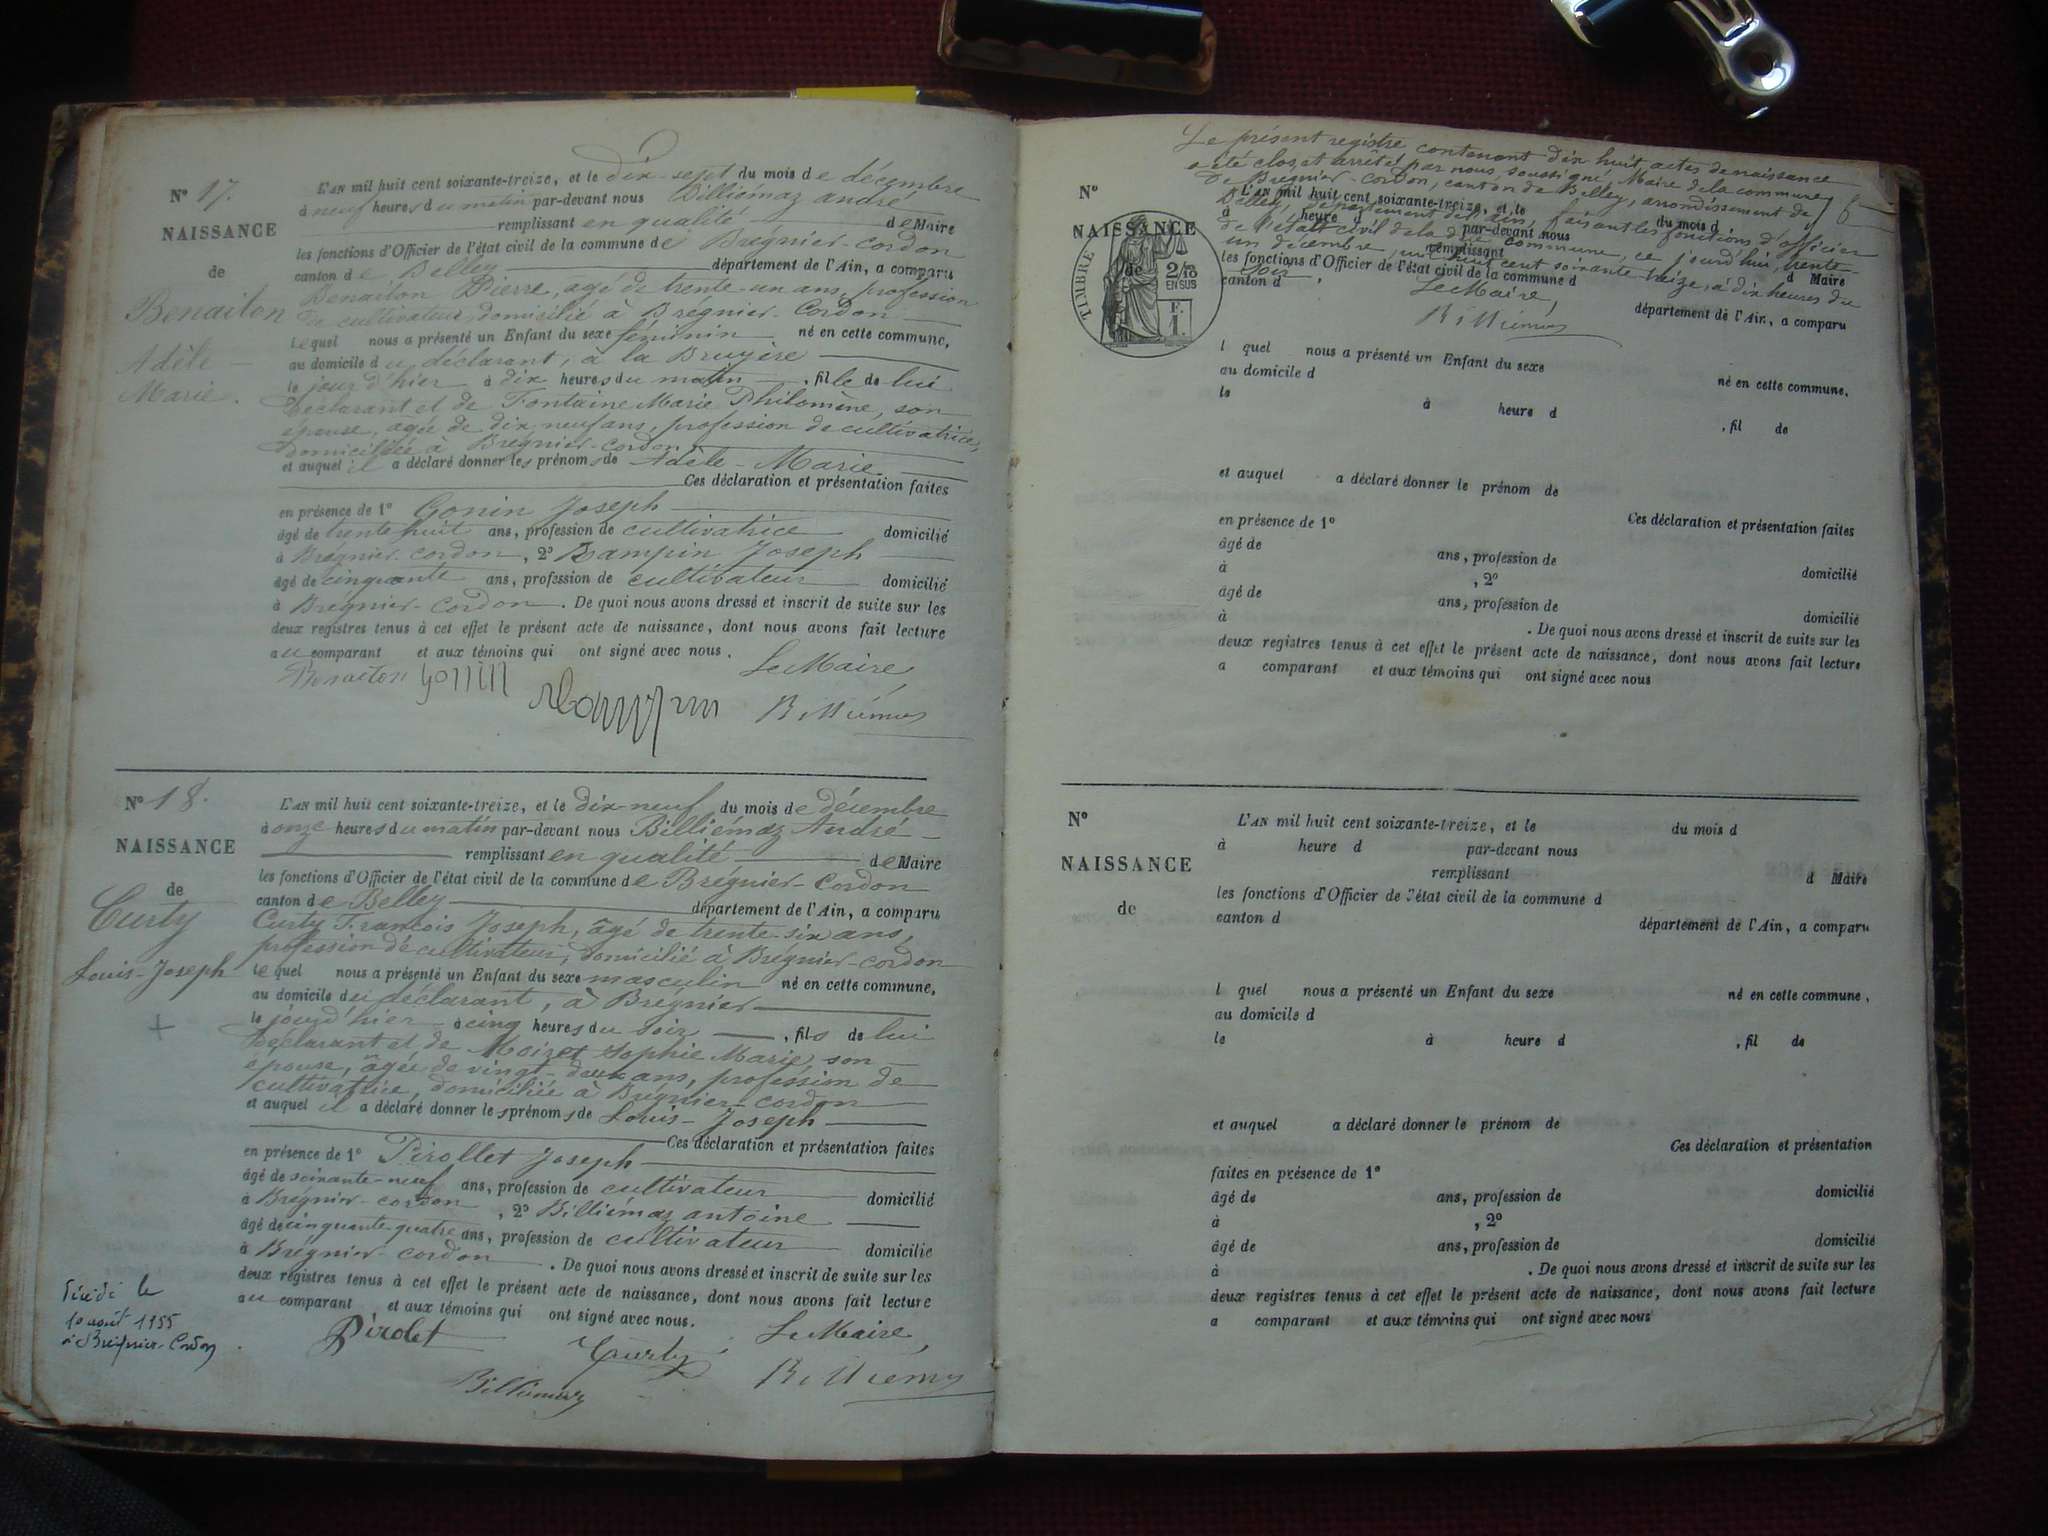 N° 17.
NAISSANCE
de
Benaiton
Adèle
Marie.
L'AN mil huit cent soixante-treize, et le dix-sept du mois de décembre
à neuf heures du matin par-devant nous Billiémaz andré
remplissant en qualité de Maire
les fonctions d'Officier de l'état civil de la commune de Brégnier-Cordon
canton de Belley département de l'Ain, a comparu
Benaiton Pierre, agé de trente un ans, profession
de cultivateur, domicilié à Brégnier-Cordon
lequel nous a présenté un Enfant du sexe féminin né en cette commune,
au domicile du déclarant, à la Bruyère
le jour d'hier à dix heures du matin, fille de lui
déclarant et de Fontaine Marie Philomène, son
épouse, agée de dix neuf ans, profession de cultivatrice,
domiciliée à Brégnier-cordon
et auquel il a déclaré donner les prénoms de Adèle-Marie.
Ces déclaration et présentation faites
en présence de 1° Gonin Joseph
âgé de trente huit ans, profession de cultivatrice domicilié
à Brégnier-cordon, 2° Rampin Joseph
âgé de cinquante ans, profession de cultivateur domicilié
à Brégnier-Cordon. De quoi nous avons dressé et inscrit de suite sur les
deux registres tenus à cet effet le présent acte de naissance, dont nous avons fait lecture
au comparant et aux témoins qui ont signé avec nous.
Benaiton Gonin Le Maire,
N° 18.
NAISSANCE
de
Curty
Louis-Joseph
+
L'AN mil huit cent soixante-treize, et le dix-neuf du mois de décembre
à onze heures du matin par-devant nous Billiémaz André
remplissant en qualité de Maire
les fonctions d'Officier de l'état civil de la commune de Brégnier-Cordon
canton de Belley département de l'Ain, a comparu
Curty François Joseph, âgé de trente-six ans,
profession de cultivateur, domicilié à Brégnier-cordon
lequel nous a présenté un Enfant du sexe masculin né en cette commune,
au domicile du déclarant, à Bregnier
le jour d'hier à cinq heures du soir, fils de lui
Déclarant et de Moizet Sophie Marie, son
épouse, âgée de vingt-deux ans, profession de
cultivatrice, domiciliée à Brégnier-cordon
et auquel il a déclaré donner les prénoms de Louis-Joseph
Ces déclaration et présentation faites
en présence de 1° Pirollet Joseph
âgé de soixante-neuf ans, profession de cultivateur domicilié
à Bregnier-cordon, 2° Billiémaz antoine
âgé de cinquante quatre ans, profession de cultivateur domicilié
à Brégnier-cordon. De quoi nous avons dressé et inscrit de suite sur les
deux registres tenus à cet effet le présent acte de naissance, dont nous avons fait lecture
au comparant et aux témoins qui ont signé avec nous.
Pirolet Curty Le Maire,
Billiémaz
Décédé le
10 août 1955
à Brégnier-Cordon
Le présent registre contenant dix huit actes de naissance
a été clos et arrêté par nous, soussigné, Maire de la commune
de Brégnier-Cordon, canton de Belley, arrondissement de
Belley, département de l'Ain, faisant les fonctions d'officier
de l'état civil de la dite commune, ce jourd'hui, trente-
un décembre, mil huit cent soixante treize, à dix heures du
soir.
Le Maire,
N°
NAISSANCE
de
TIMBRE
2/10
EN SUS
F.
1.
L'AN mil huit cent soixante-treize, et le du mois d
à heure d par-devant nous
remplissant d Maire
les fonctions d'Officier de l'état civil de la commune d
canton d département de l'Ain, a comparu
l quel nous a présenté un Enfant du sexe né en cette commune,
au domicile d
le à heure d , fil de
et auquel a déclaré donner le prénom de
Ces déclaration et présentation faites
en présence de 1°
âgé de ans, profession de domicilié
à , 2°
âgé de ans, profession de domicilié
à . De quoi nous avons dressé et inscrit de suite sur les
deux registres tenus à cet effet le présent acte de naissance, dont nous avons fait lecture
a comparant et aux témoins qui ont signé avec nous
N°
NAISSANCE
de
L'AN mil huit cent soixante-treize, et le du mois d
à heure d par-devant nous
remplissant d Maire
les fonctions d'Officier de l'état civil de la commune d
canton d département de l'Ain, a comparu
l quel nous a présenté un Enfant du sexe né en cette commune,
au domicile d
le à heure d , fil de
et auquel a déclaré donner le prénom de
Ces déclaration et présentation
faites en présence de 1°
âgé de ans, profession de domicilié
à , 2°
âgé de ans, profession de domicilié
à . De quoi nous avons dressé et inscrit de suite sur les
deux registres tenus à cet effet le présent acte de naissance, dont nous avons fait lecture
a comparant et aux témoins qui ont signé avec nous